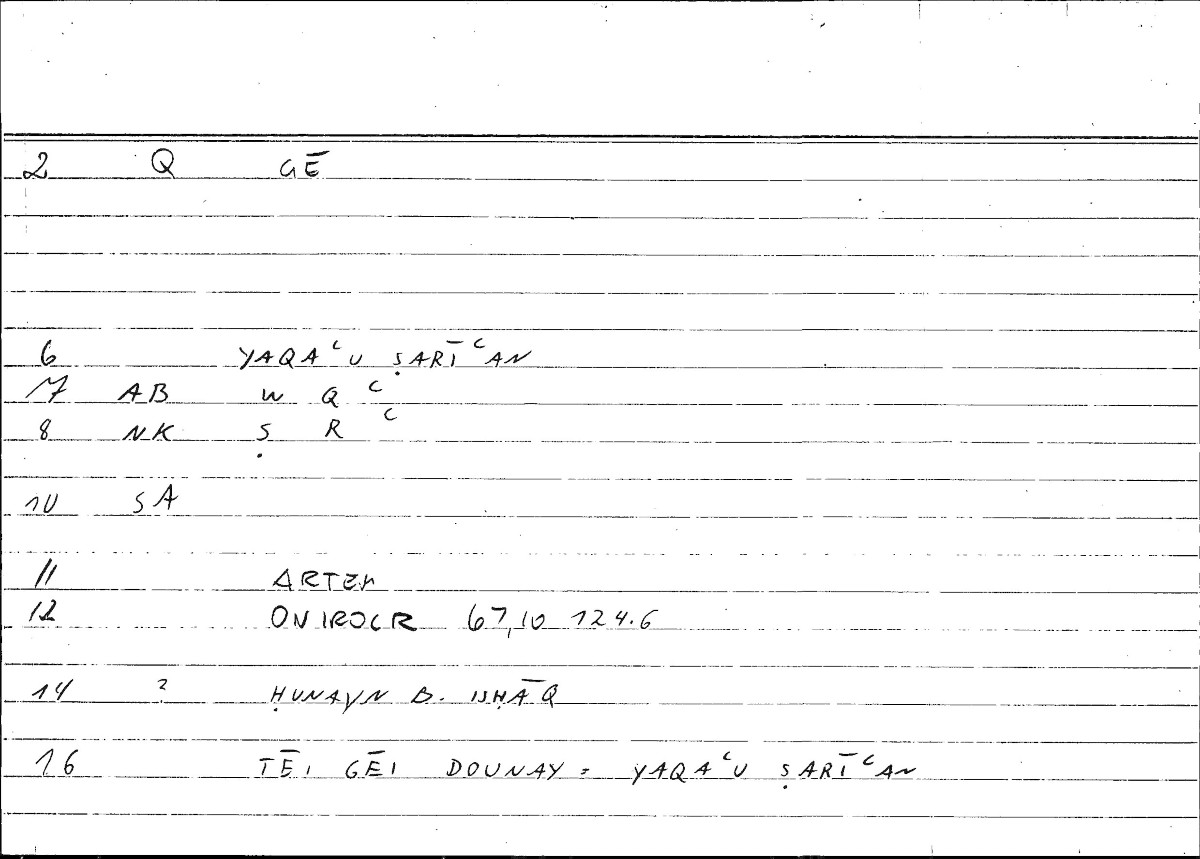 2 Q GĒ
6 YAQAʿU ṢARĪʿAN
7 AB W Q ʿ
8 NK Ṣ R ʿ
10 SA
11 ARTEM
12 ONIROCR 67,10 124.6
14 ? ḤUNAYN B. ISḤĀQ
16 TĒI GĒI DOUNAY = YAQAʿU ṢARĪʿAN